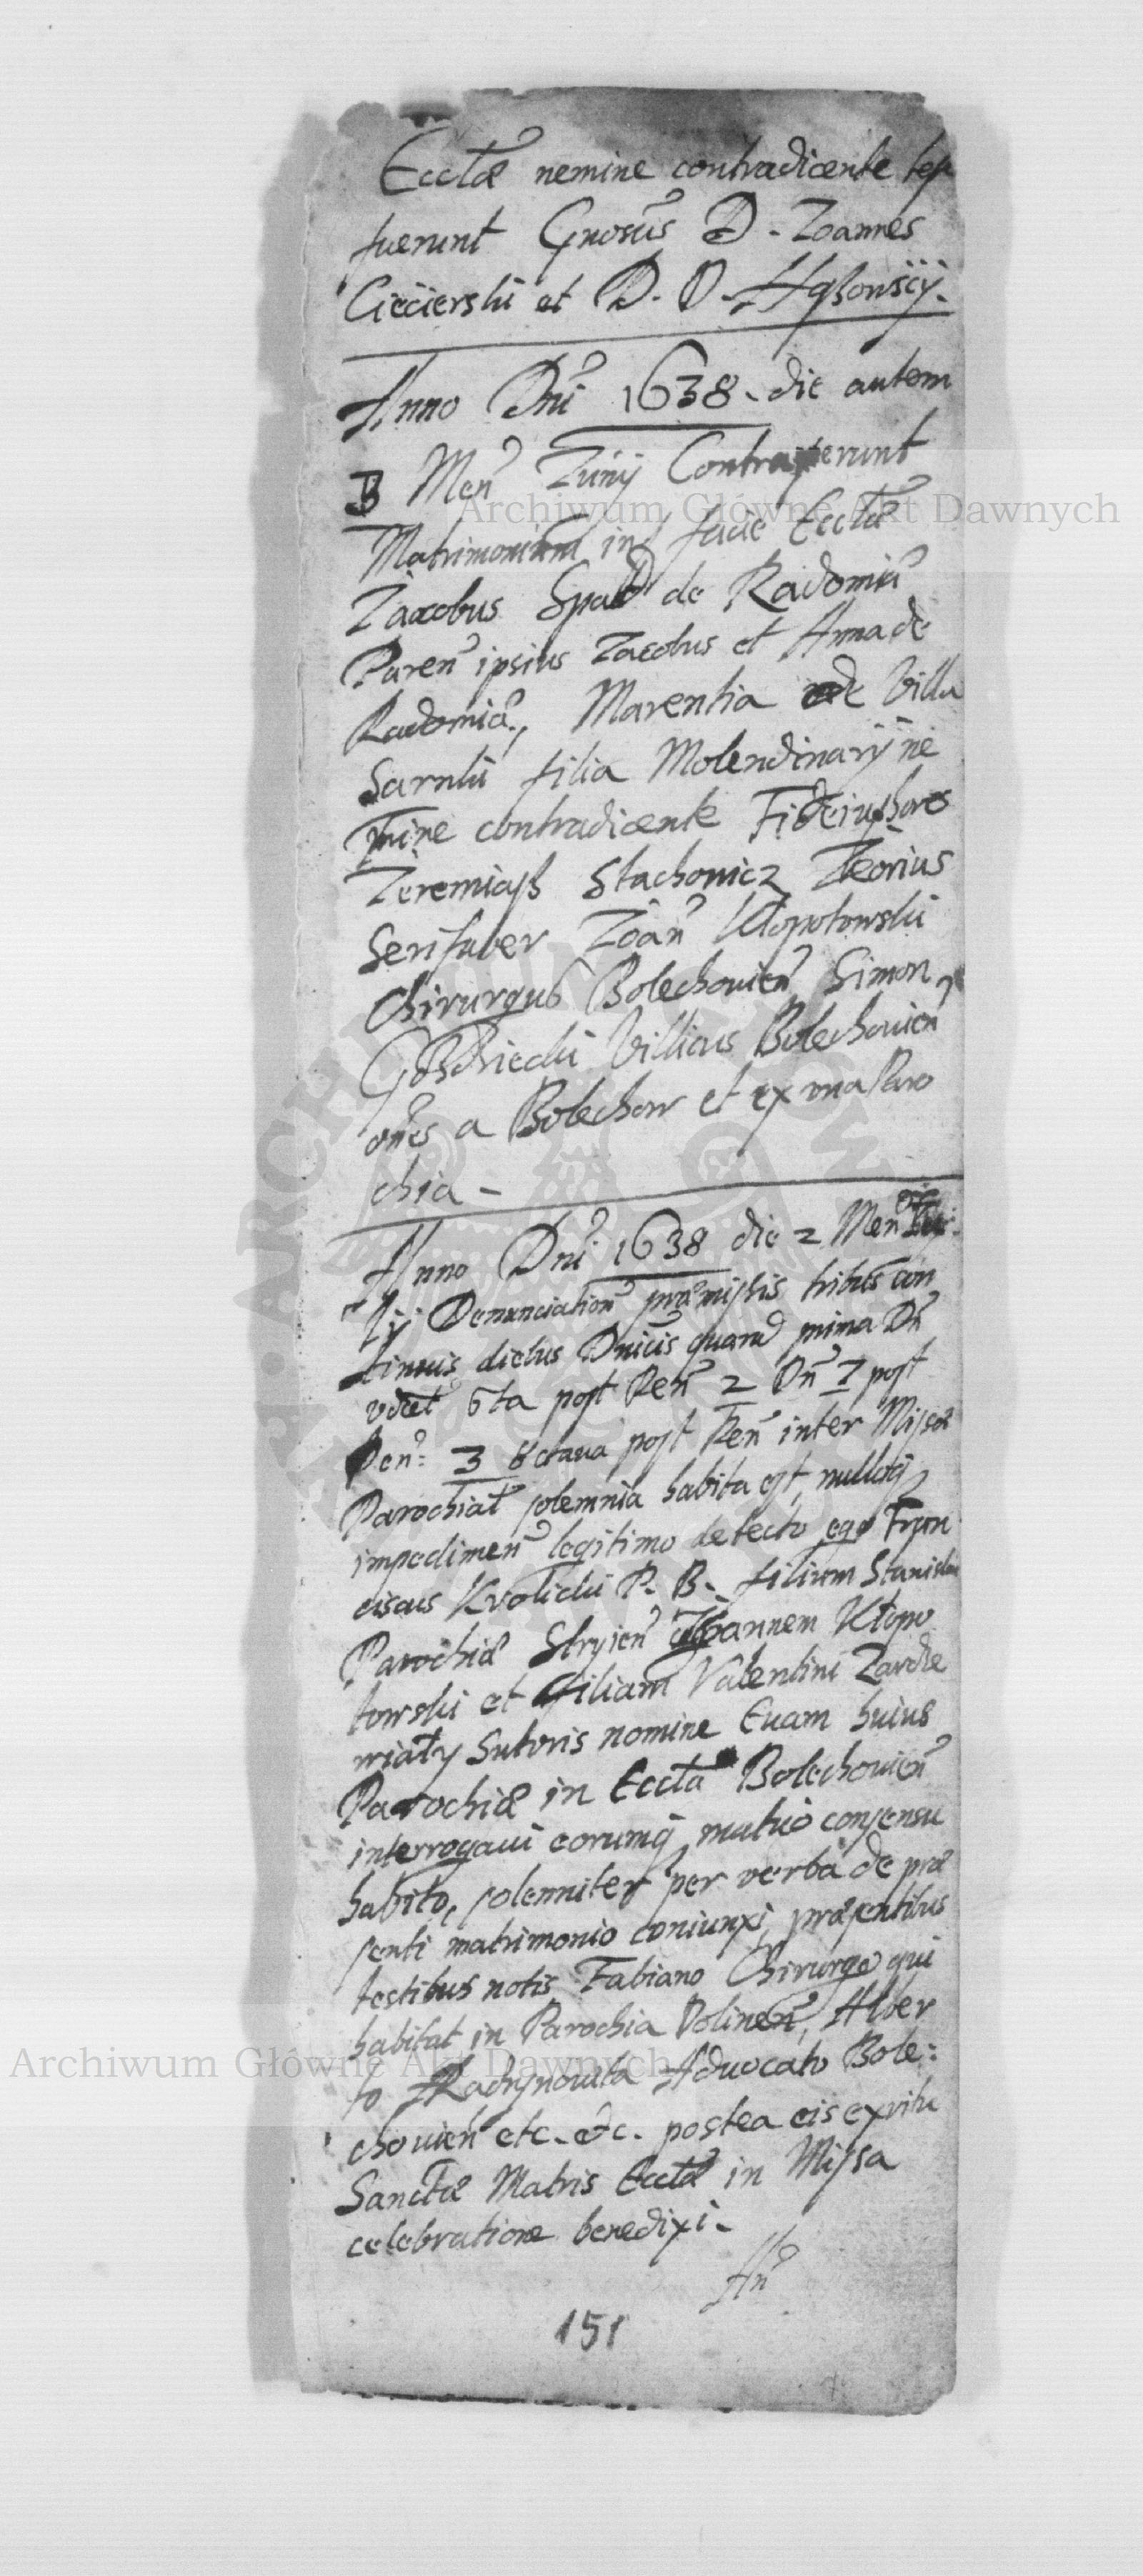 Ecctæ nemine contradicente test
fuerunt Gnosus D. Ioannes
Ciecierski et D. D.
Anno Dni 1638. die autem
3 Men Iunij Contraxerunt
Matrimonium in facie Ecctæ
Iacobus Spald de Radomia
Paren ipsius Iacobus et Anna de
Radomia, Marentia de Villa
Sarnki filia Molendinarij ne
mine contradicente Fideiussores
Ieremiass Stachowicz
Serifaber Ioan Kłopotowski
Chirurgus Bolechouien Simon
Villicus Bolechouien
omes a Bolechow et ex una Paro
chia -
Anno Dni 1638 die 2 Men
lij Denunciation præmissis tribus con
tinuis diebus Dnicis quaru prima Dn
videt 6ta post Pen 2 Dn 7 post
Pen: 3 8ctaua post Pen inter Missæ
Parochial solemnia habita est, nulloq
impedimen legitimo detecto ego Fran
ciscus Krolicki P. B. filium Stanislai
Parochiæ Stryien Ioannem Kłopo
towski et filiam Valentini Zardze
wiały Sutoris nomine Euam huius
Parochiæ in Eccta Bolechouien
interrogaui eorumq mutuo consensu
habito, solenniter per verba de præ
senti matrimonio coniunxi præsentibus
testibus notis Fabiano Chirurgo qui
habitat in Parochia Dolinen, Alber
to Advocato Bole:
chouien etc. etc. postea eis ex ritu
Sanctæ Matris Ecctæ in Missa
celebratione benedixi.
An
151
Archiwum Główne Akt Dawnych
Archiwum Główne Akt Dawnych